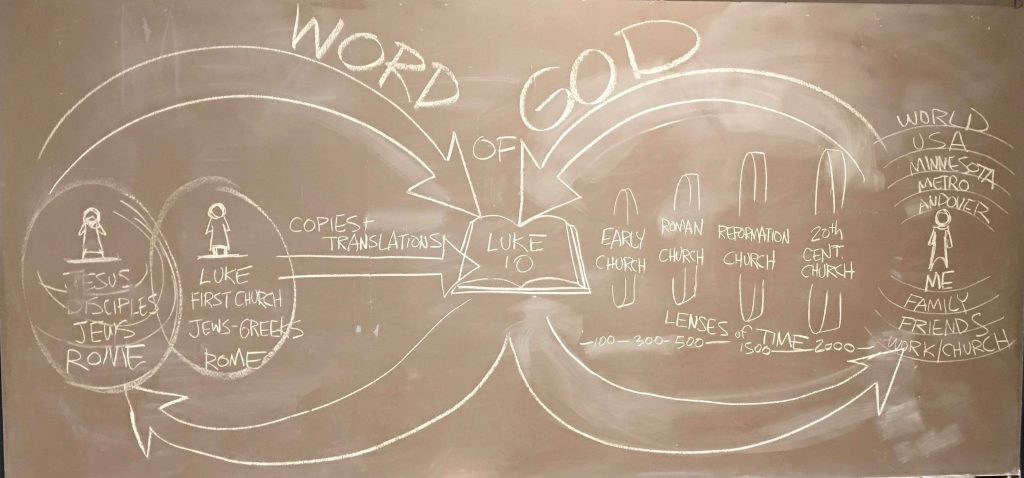 WORD
OF
GOD
JESUS
DISCIPLES
JEWS
ROME
LUKE
FIRST CHURCH
JEWS-GREEKS
ROME
COPIES +
TRANSLATIONS
LUKE
10
EARLY
CHURCH
ROMAN
CHURCH
REFORMATION
CHURCH
20th
CENT.
CHURCH
LENSES of TIME
-100-300-500-1500-2000-
WORLD
USA
MINNESOTA
METRO
ANDOVER
ME
FAMILY
FRIENDS
WORK/CHURCH